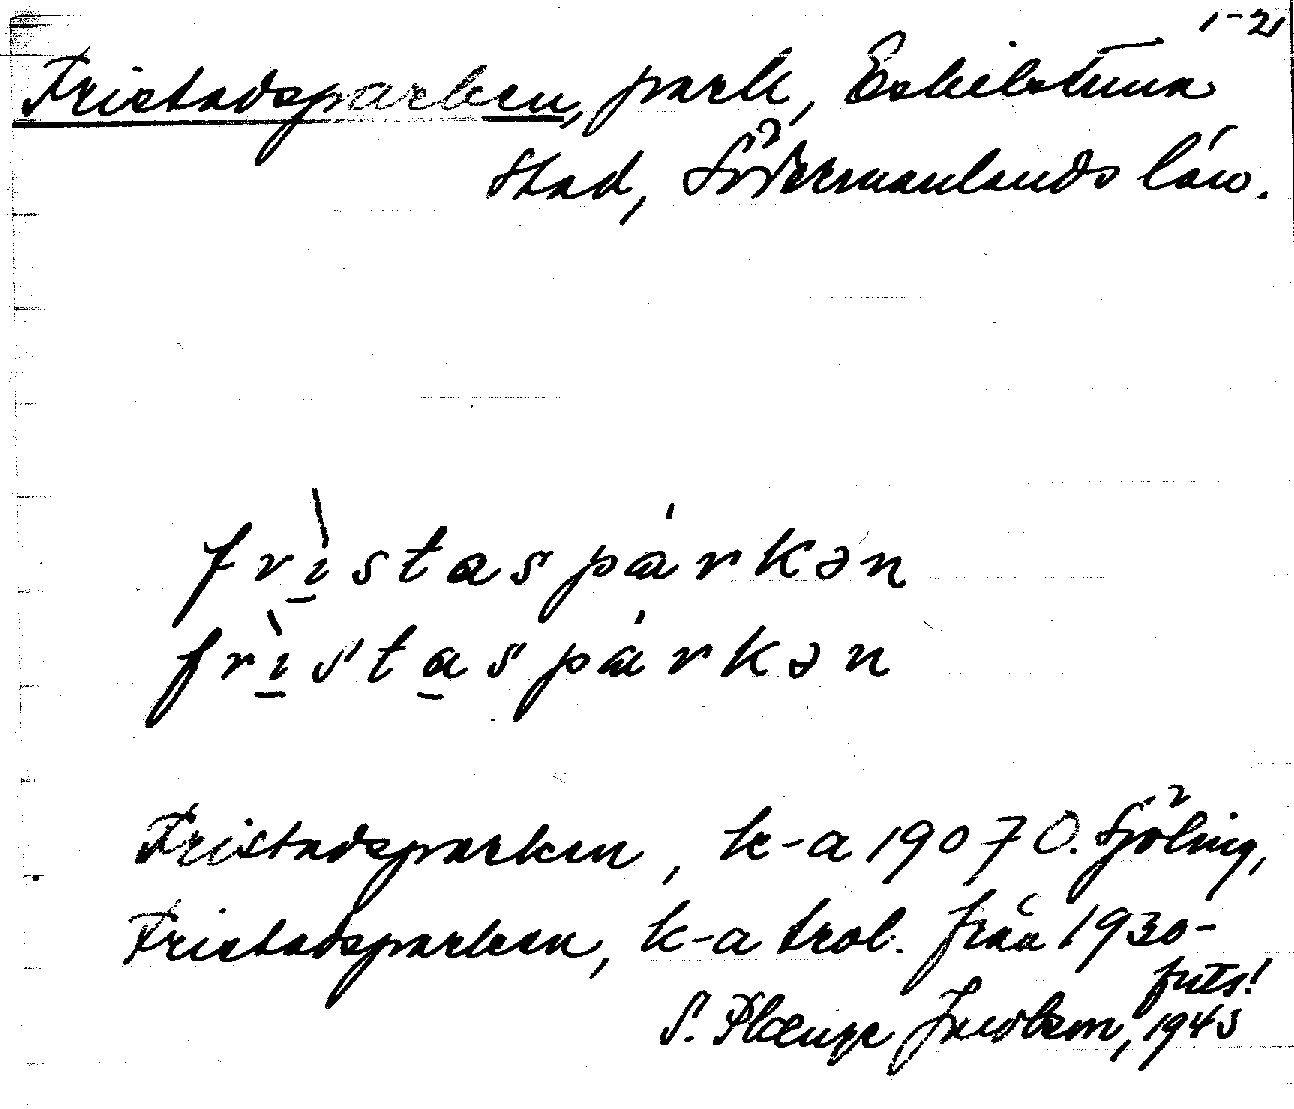 1-21
Fristadsparken, park, Eskilstuna
stad, Södermanlands län.
frìstaspárkən
frìstaspárkən
Fristadsparken, k-a 1907 O. Sjöling,
Fristadsparken, k-a trol. från 1930-
S. Plænge Jacobson, 1943